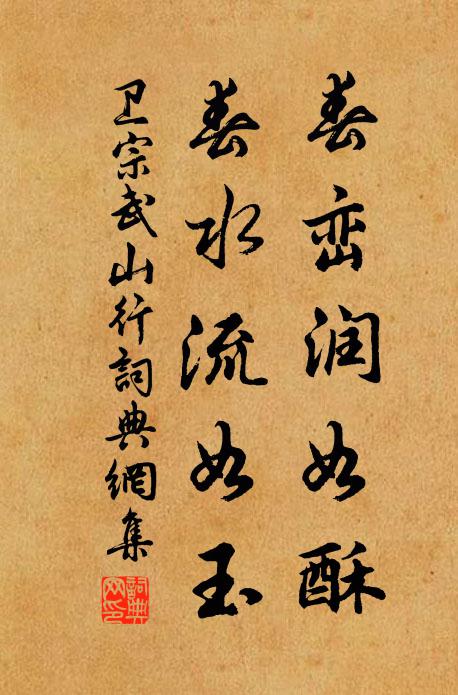 春峦润如酥
春水流如玉
卫宗武山行詞典網集
詞典网印